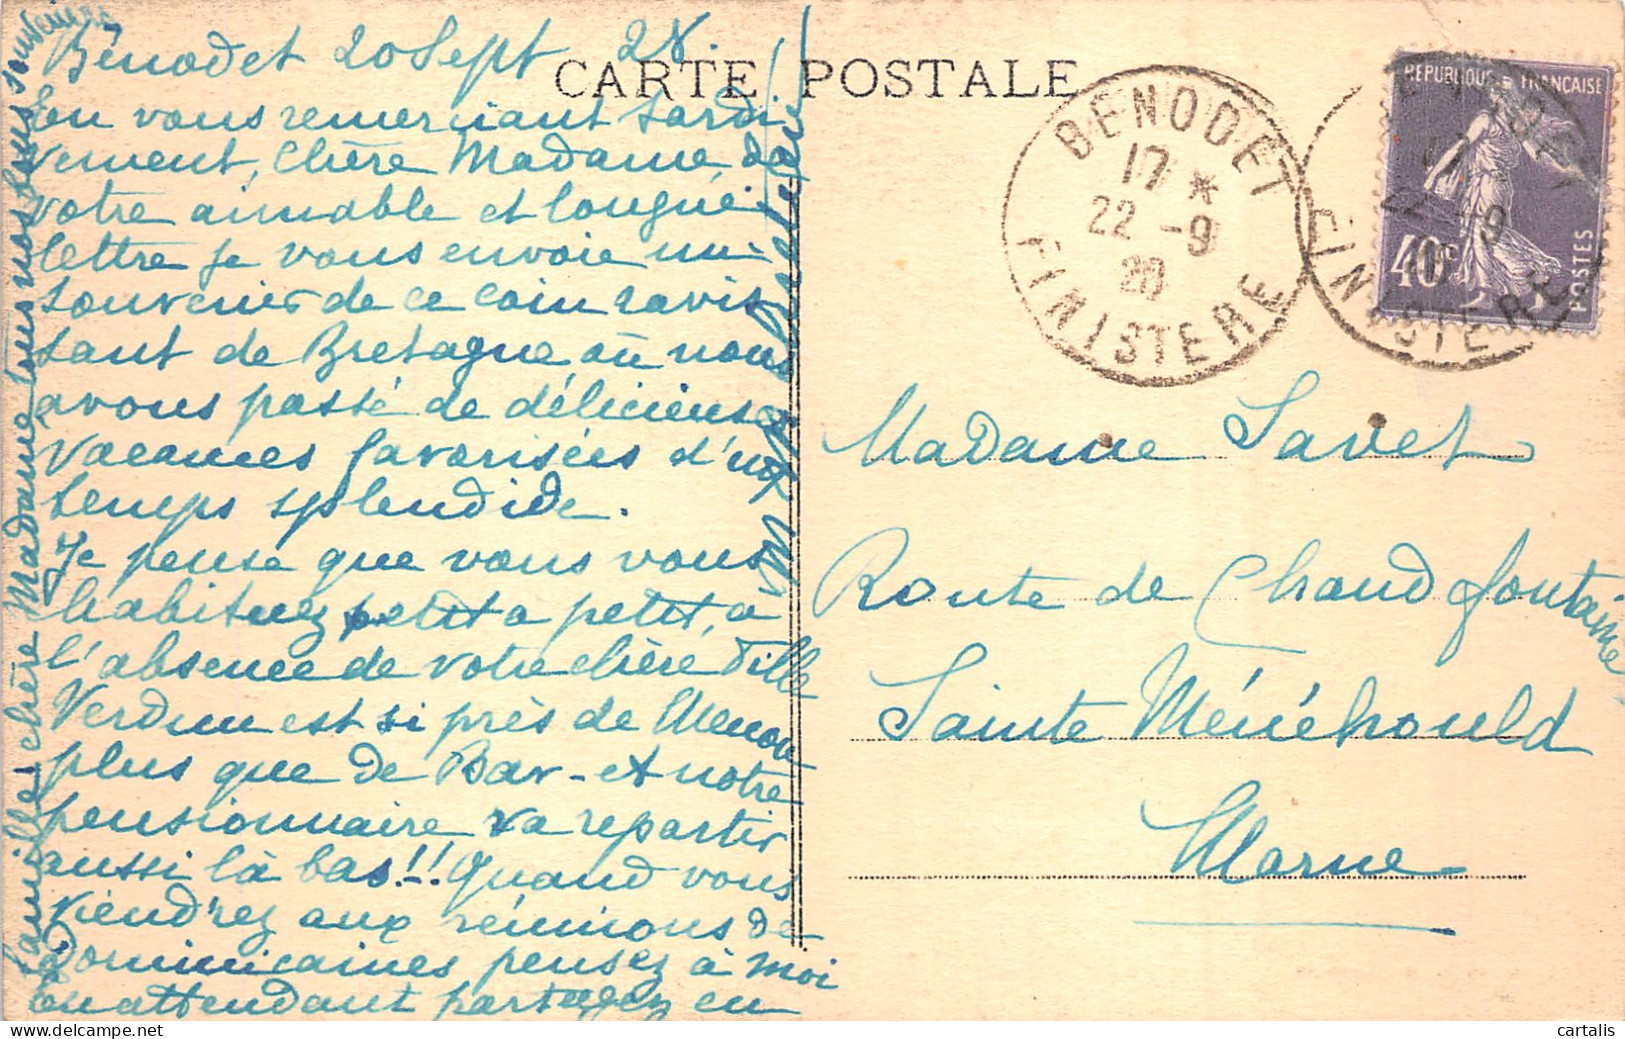 Bénodet 20 Sept 28.
CARTE POSTALE
En vous remerciant tardi
vement, Chère Madame, de
votre aimable et longue
lettre je vous envoie un
souvenir de ce coin ravis
sant de Bretagne où nous
avons passé de délicieuses
vacances favorisées d'un
temps splendide.
Je pense que vous vous
habituez petit a petit, a
l'absence de votre chère fille
Verdun est si près de Menou
plus que de Bar - et notre
pensionnaire va repartir
aussi là bas!! Quand vous
viendrez aux réunions de
Dominicaines pensez à moi
En attendant partagez en
famille chère Madame tous nos bons souvenirs
BENODET
17 *
22 -9
28
FINISTERE
REPUBLIQUE FRANÇAISE
40c
POSTES
22 -9
FINISTERE
Madame Savet
Route de Chaudfontaine
Sainte Ménéhould
Marne
cartalis